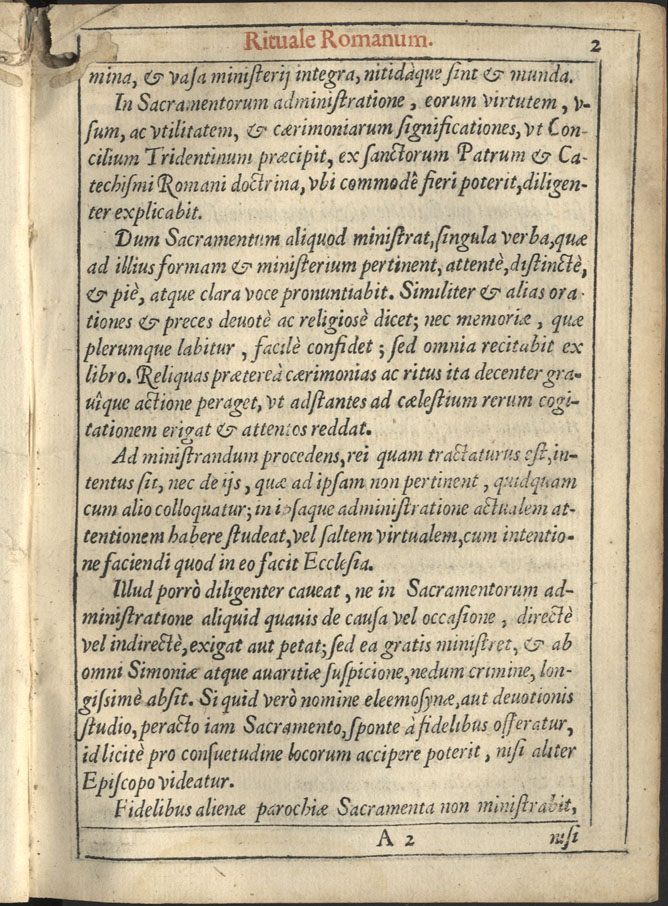 Rituale Romanum. 2
mina, & vaſa miniſterij integra, nitidàque ſint & munda.
In Sacramentorum adminiſtratione, eorum virtutem, v-
ſum, ac vtilitatem, & cærimoniarum ſignificationes, vt Con-
cilium Tridentinum præcipit, ex ſanctorum Patrum & Ca-
techiſmi Romani doctrina, vbi commodê fieri poterit, diligen-
ter explicabit.
Dum Sacramentum aliquod miniſtrat, ſingula verba, quæ
ad illius formam & miniſterium pertinent, attentè, diſtinctè,
& piè, atque clara voce pronuntiabit. Similiter & alias ora-
tiones & preces deuotè ac religiosè dicet; nec memoriæ, quæ
plerumque labitur, facilè confidet; ſed omnia recitabit ex
libro. Reliquas prætereà cærimonias ac ritus ita decenter gra-
uîque actione peraget, vt adſtantes ad cæleſtium rerum cogi-
tationem erigat & attentos reddat.
Ad miniſtrandum procedens, rei quam tractaturus eſt, in-
tentus ſit, nec de ijs, quæ ad ipſam non pertinent, quidquam
cum alio colloquatur; in ipſaque adminiſtratione actualem at-
tentionem habere ſtudeat, vel ſaltem virtualem, cum intentio-
ne faciendi quod in eo facit Eccleſia.
Illud porrò diligenter caueat, ne in Sacramentorum ad-
miniſtratione aliquid quauis de cauſa vel occaſione, directè
vel indirectè, exigat aut petat; ſed ea gratis miniſtret, & ab
omni Simoniæ atque auaritiæ ſuſpicione, nedum crimine, lon-
giſſimè abſit. Si quid verò nomine eleemoſynæ, aut deuotionis
ſtudio, peracto iam Sacramento, ſponte à fidelibus offeratur,
id licitè pro conſuetudine locorum accipere poterit, niſi aliter
Epiſcopo videatur.
Fidelibus alienæ parochiæ Sacramenta non miniſtrabit,
A 2 niſi